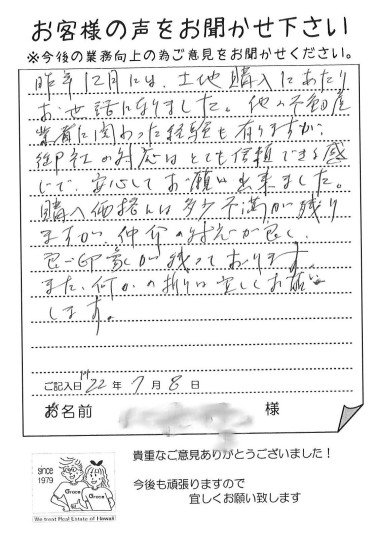 お客様の声をお聞かせ下さい
※今後の業務向上の為ご意見をお聞かせください。
昨年12月には、土地購入にあたり
お世話になりました。他の不動産
業者に関わった経験も有りますが、
御社の対応はとても信頼できる感
じで、安心してお願い出来ました。
購入価格には多少不満が残り
ますが、仲介の対応が良く、
良い印象が残っております。
また、何かの折りは宜しくお願い
します。
ご記入日 H22年 7月 8日
お名前 様
since
1979
Grace Grace
We treat Real Estate of Hawaii
貴重なご意見ありがとうございました!
今後も頑張りますので
宜しくお願い致します